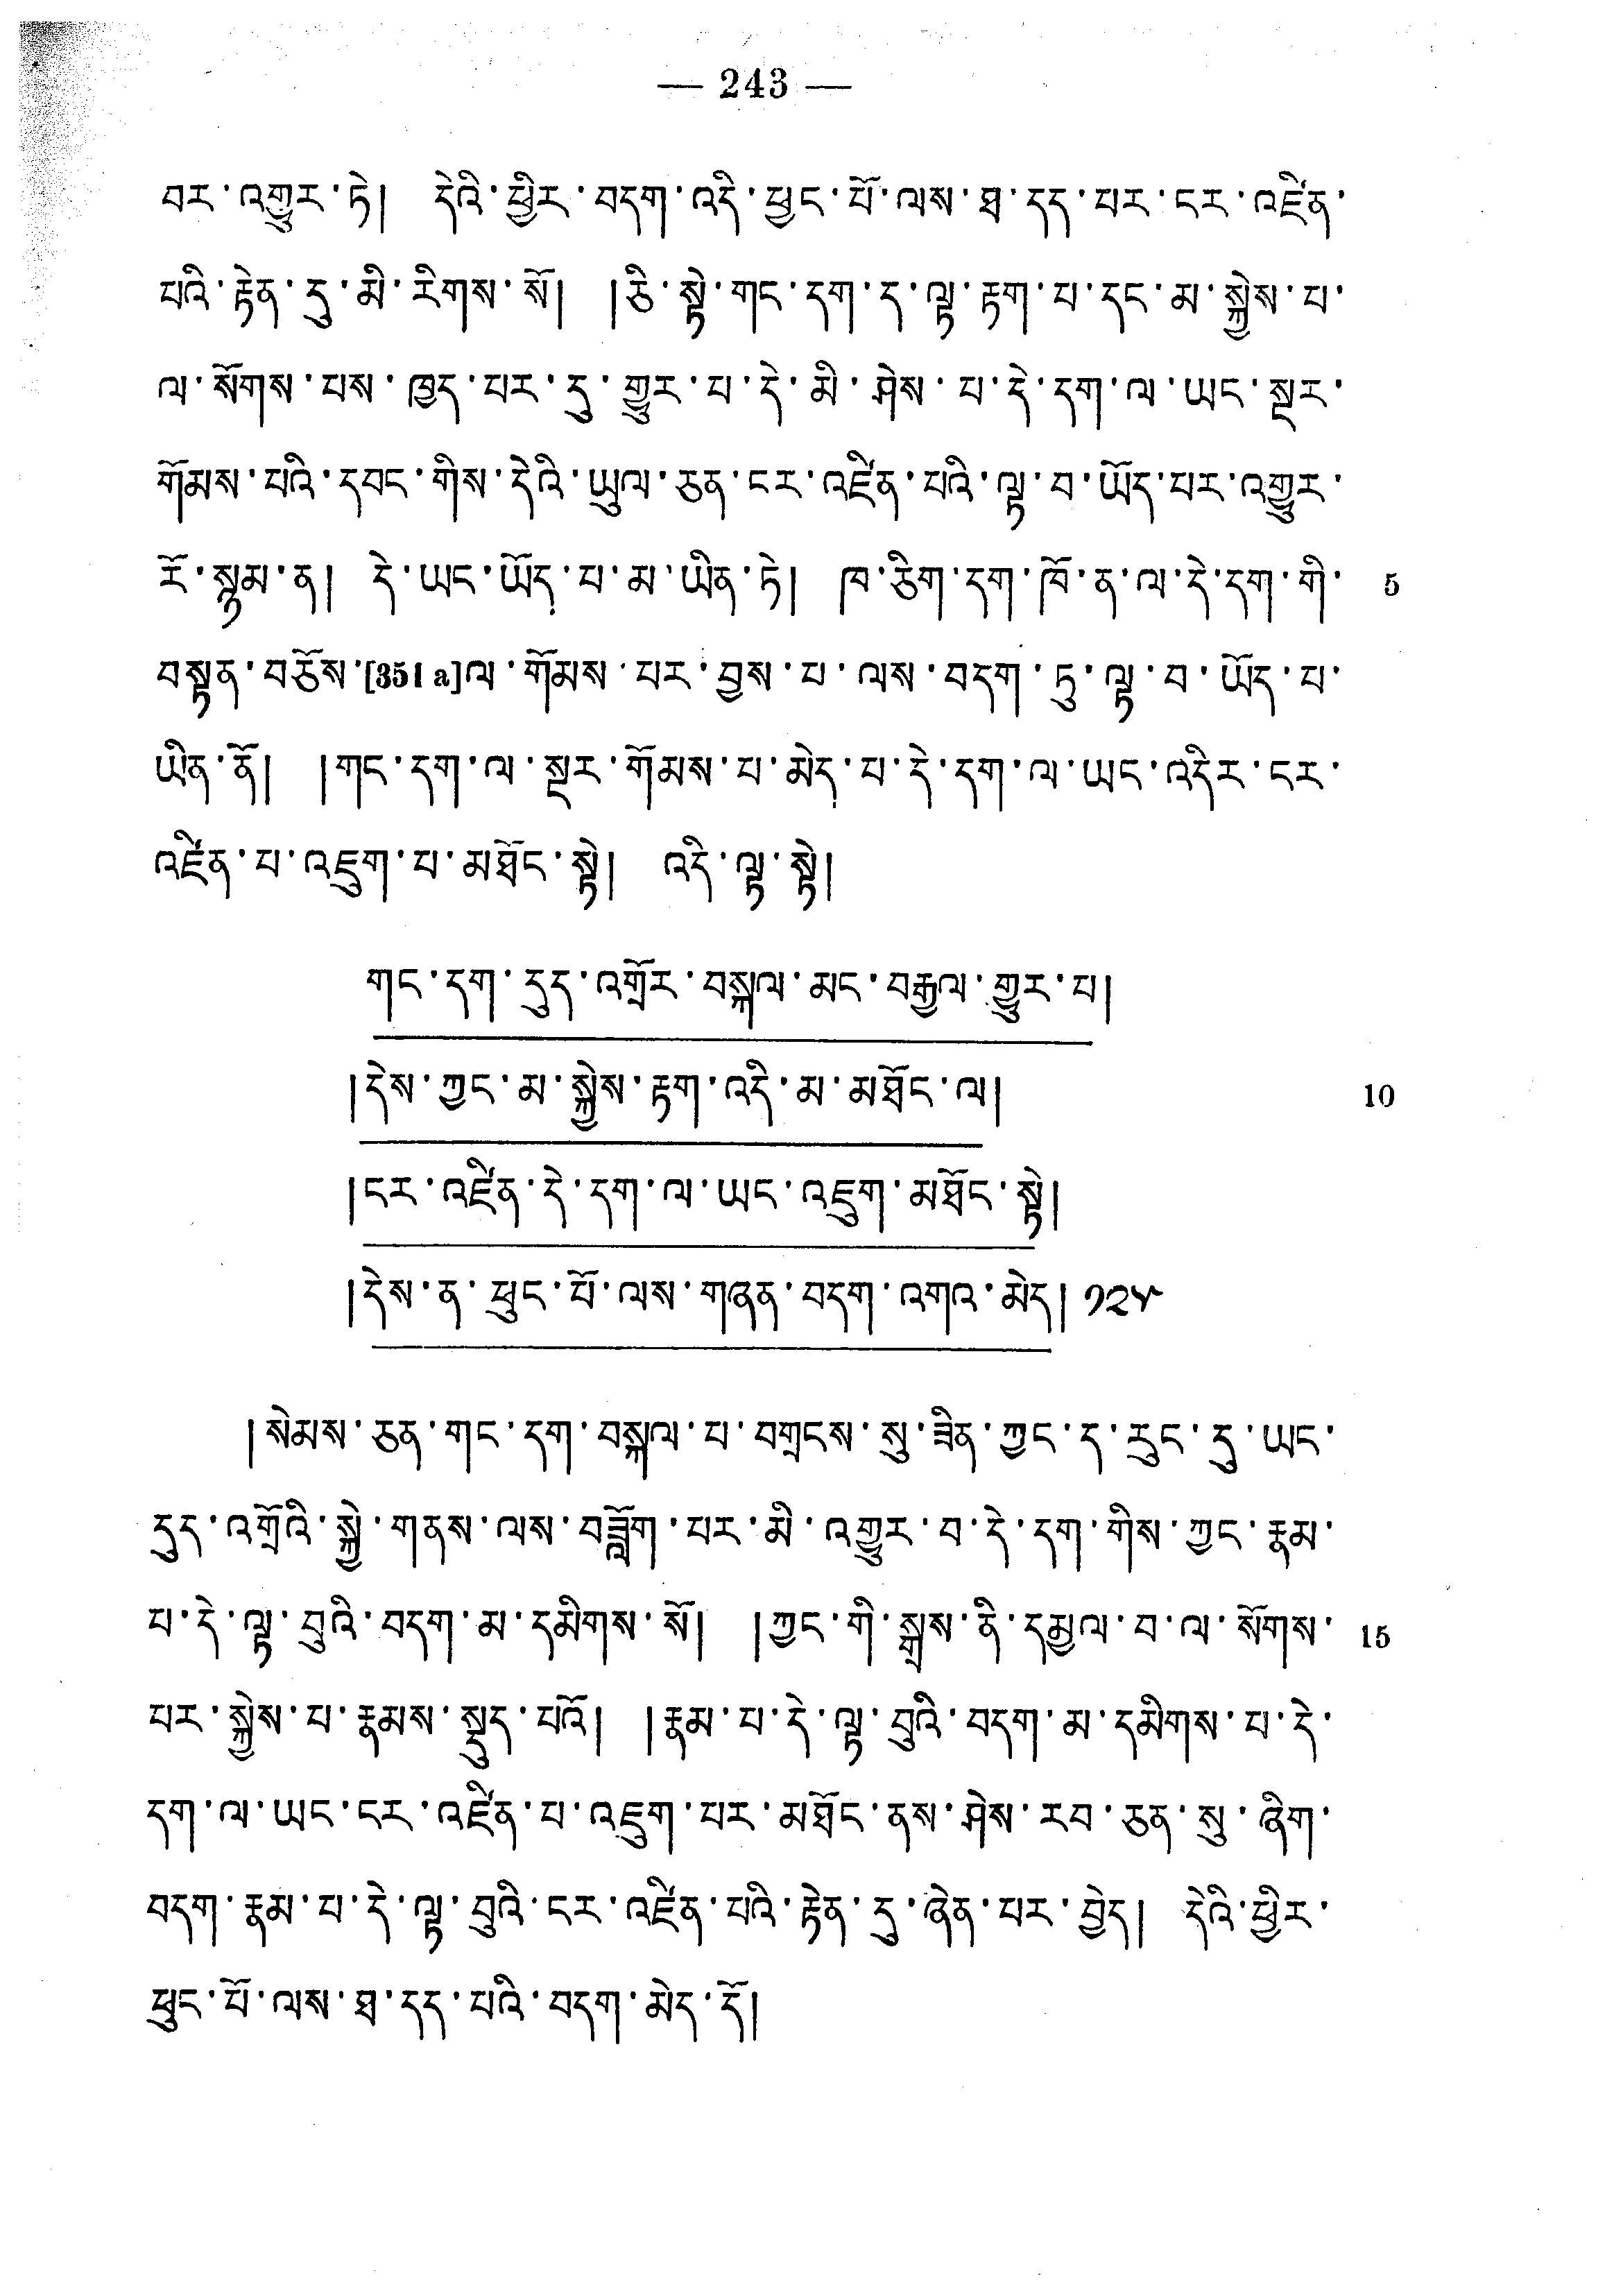 — 243 —
བར་འགྱུར་ཏེ། དེའི་ཕྱིར་བདག་འདི་ཕྱང་པོ་ལས་ཐ་དད་པར་ངར་འཛིན་
པའི་རྟེན་དུ་མི་རིགས་སོ། །ཅི་སྟེ་གང་དག་ད་ལྟ་རྟག་པ་དང་མ་སྐྱེས་པ་
ལ་སོགས་པས་ཁྱད་པར་དུ་གྱུར་པ་དེ་མི་ཤེས་པ་དེ་དག་ལ་ཡང་སྔར་
གོམས་པའི་དབང་གིས་དེའི་ཡུལ་ཅན་ངར་འཛིན་པའི་ལྟ་བ་ཡོད་པར་འགྱུར་
རོ་སྙམ་ན། དེ་ཡང་ཡོད་པ་མ་ཡིན་ཏེ། ཁ་ཅིག་དག་ཁོ་ན་ལ་དེ་དག་གི་ 5
བསྟན་བཅོས་[351 a]ལ་གོམས་པར་བྱས་པ་ལས་བདག་ཏུ་ལྟ་བ་ཡོད་པ་
ཡིན་ནོ། །གང་དག་ལ་སྔར་གོམས་པ་མེད་པ་དེ་དག་ལ་ཡང་འདིར་ངར་
འཛིན་པ་འཇུག་པ་མཐོང་སྟེ། འདི་ལྟ་སྟེ།
གང་དག་དུད་འགྲོར་བསྐལ་མང་བརྒྱལ་གྱུར་པ།
།དེས་ཀྱང་མ་སྐྱེས་རྟག་འདི་མ་མཐོང་ལ། 10
།ངར་འཛིན་དེ་དག་ལ་ཡང་འཇུག་མཐོང་སྟེ།
།དེས་ན་ཕུང་པོ་ལས་གཞན་བདག་འགའ་མེད། ༡༢༥
།སེམས་ཅན་གང་དག་བསྐལ་པ་བགྲངས་སུ་ཟིན་ཀྱང་ད་རུང་དུ་ཡང་
དུད་འགྲོའི་སྐྱེ་གནས་ལས་བཟློག་པར་མི་འགྱུར་བ་དེ་དག་གིས་ཀྱང་རྣམ་
པ་དེ་ལྟ་བུའི་བདག་མ་དམིགས་སོ། །ཀྱང་གི་སྒྲས་ནི་དམྱལ་བ་ལ་སོགས་ 15
པར་སྐྱེས་པ་རྣམས་སྡུད་པའོ། །རྣམ་པ་དེ་ལྟ་བུའི་བདག་མ་དམིགས་པ་དེ་
དག་ལ་ཡང་ངར་འཛིན་པ་འཇུག་པར་མཐོང་ནས་ཤེས་རབ་ཅན་སུ་ཞིག་
བདག་རྣམ་པ་དེ་ལྟ་བུའི་ངར་འཛིན་པའི་རྟེན་དུ་ཞེན་པར་བྱེད། དེའི་ཕྱིར་
ཕུང་པོ་ལས་ཐ་དད་པའི་བདག་མེད་དོ།